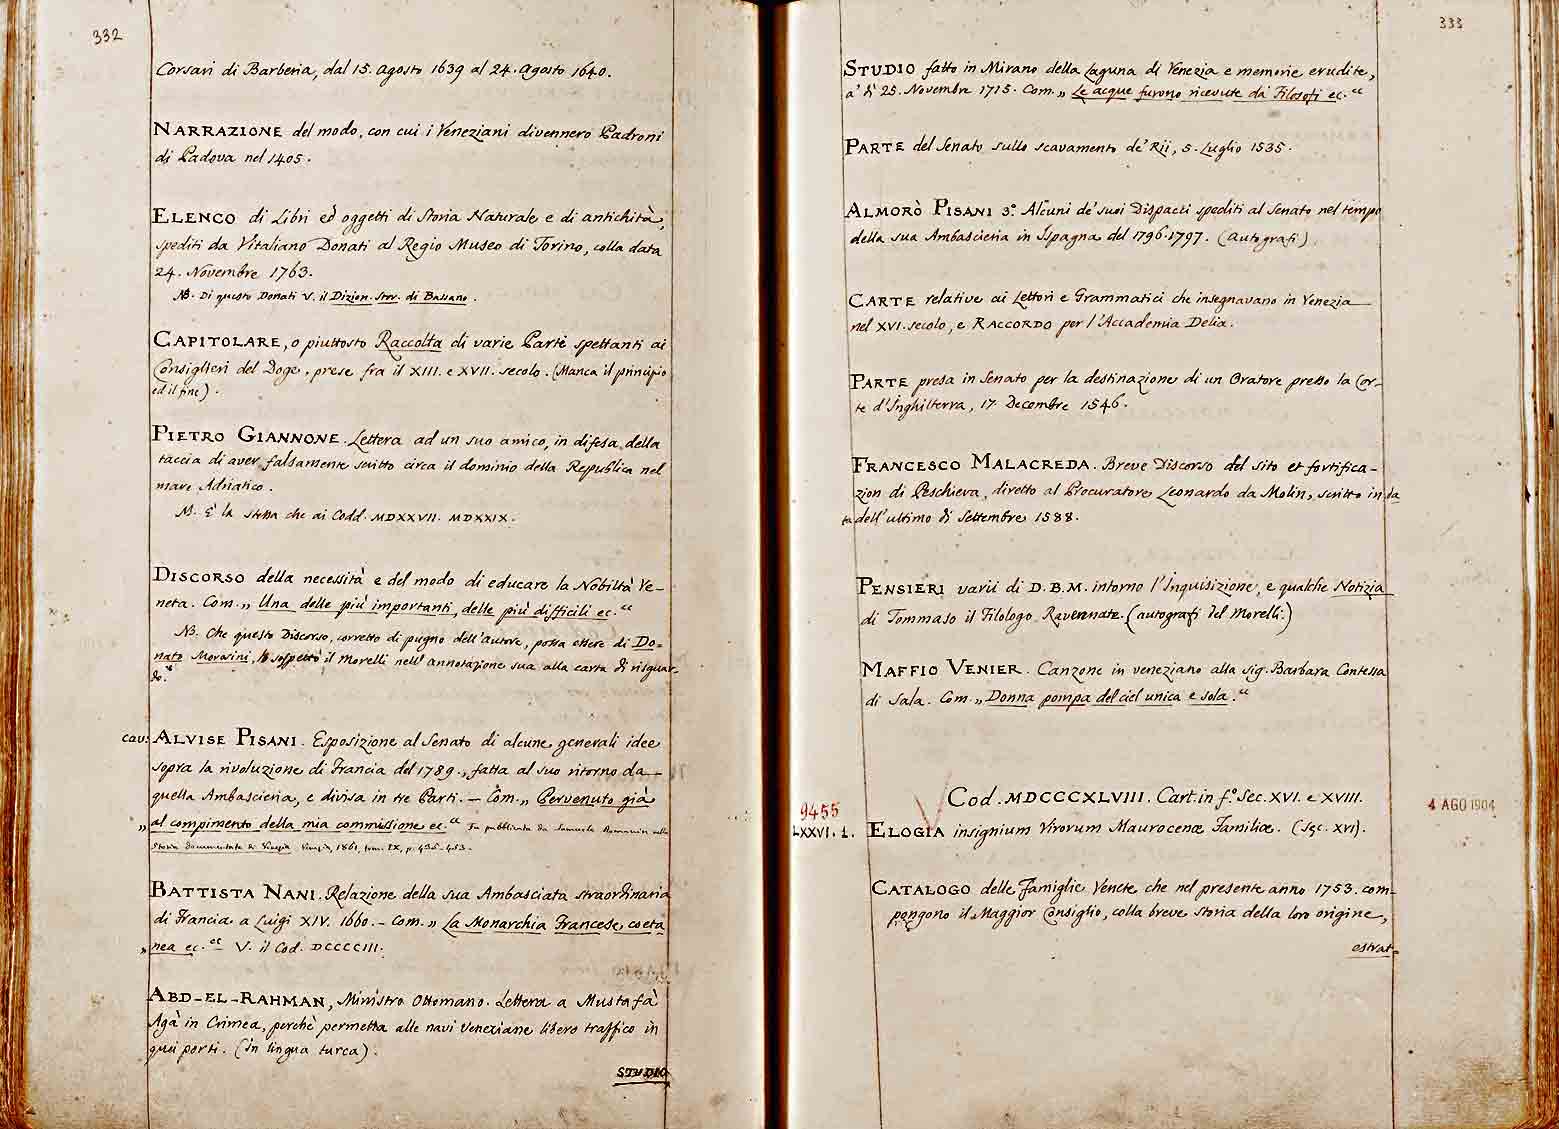 332
Corsari di Barberia, dal 15. Agosto 1639 al 24. Agosto 1640.
NARRAZIONE del modo, con cui i Veneziani divennero Padroni
di Padova nel 1405.
ELENCO di Libri ed oggetti di Storia Naturale e di antichità,
spediti da Vitaliano Donati al Regio Museo di Torino, colla data
24. Novembre 1763.
NB. Di questo Donati V. il Dizion. Stor. di Bassano.
CAPITOLARE, o piuttosto Raccolta di varie Parti spettanti ai
Consiglieri del Doge, prese fra il XIII. e XVII. secolo. (Manca il principio
ed il fine).
PIETRO GIANNONE. Lettera ad un suo amico, in difesa della
taccia di aver falsamente scritto circa il dominio della Republica nel
mare Adriatico.
N. È la stessa che ai Codd. MDXXVII. MDXXIX.
DISCORSO della necessità e del modo di educare la Nobiltà Ve-
neta. Com. „ Una delle più importanti, delle più difficili ec. “
NB. Che questo Discorso, corretto di pugno dell'autore, possa essere di Do=
nato Morosini, lo sospettò il Morelli nell'annotazione sua alla carta di risguar-
do.
cav: ALVISE PISANI. Esposizione al Senato di alcune generali idee
sopra la rivoluzione di Francia del 1789., fatta al suo ritorno da
quella Ambascieria, e divisa in tre Parti. — Com. „ Pervenuto già
„ al compimento della mia commissione ec. “ Fu pubblicata da Samuele Romanin nella
Storia documentata di Venezia Venezia, 1861, tom. IX, p. 435-453.
BATTISTA NANI. Relazione della sua Ambasciata straordinaria
di Francia a Luigi XIV. 1660. - Com. „ La Monarchia Francese, coeta
„ nea ec. “ V. il Cod. DCCCCIII.
ABD-EL-RAHMAN, Ministro Ottomano. Lettera a Mustafà
Agà in Crimea, perchè permetta alle navi Veneziane libero traffico in
quei porti. (in lingua turca).
STUDIO
333
STUDIO fatto in Mirano della Laguna di Venezia e memorie erudite,
a' dì 25. Novembre 1715. Com. „ Le acque furono ricevute da' Filosofi ec. “
PARTE del Senato sullo scavamento de' Rii, 5. Luglio 1535.
ALMORÒ PISANI 3.° Alcuni de' suoi Dispacci spediti al Senato nel tempo
della sua Ambascieria in Ispagna del 1796.1797. (Autografi)
CARTE relative ai Lettori e Grammatici che insegnavano in Venezia
nel XVI. secolo, e RACCORDO per l'Accademia Delia.
PARTE presa in Senato per la destinazione di un Oratore presso la Cor-
te d'Inghilterra, 17. Decembre 1546.
FRANCESCO MALACREDA. Breve Discorso del sito et fortifica-
zion di Peschiera, diretto al Procuratore Leonardo da Molin, scritto in da
ta dell'ultimo di Settembre 1588.
PENSIERI varii di D.B.M. intorno l'Inquisizione, e qualche Notizia
di Tommaso il Filologo Ravennate. (autografi del Morelli.)
MAFFIO VENIER. Canzone in veneziano alla sig. Barbara Contessa
di Sala. Com. „ Donna pompa del ciel unica e sola. “
Cod. MDCCCXLVIII. Cart. in f.° Sec. XVI. e XVIII.
9455
4 AGO 1904
LXXVI. 1. ELOGIA insignium Virorum Maurocenæ Familiæ. (Sec. XVI).
CATALOGO delle Famiglie Venete che nel presente anno 1753. com-
pongono il Maggior Consiglio, colla breve storia della loro origine,
estrat-